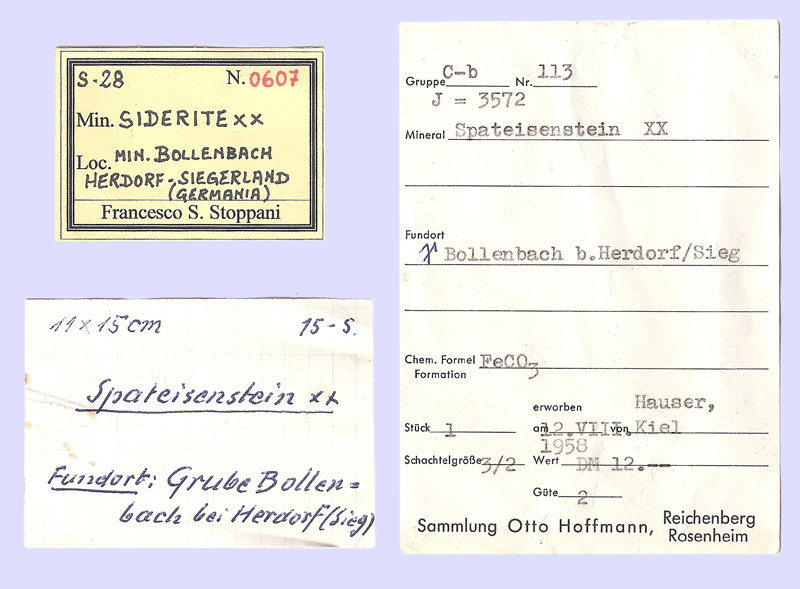 S-28 N. 0607
Min. SIDERITE xx
Loc. MIN. BOLLENBACH
HERDORF - SIEGERLAND
(GERMANIA)
Francesco S. Stoppani
11 x 15 cm 15-S.
Spateisenstein xx
Fundort: Grube Bollen=
bach bei Herdorf (Sieg)
Gruppe C-b Nr. 113
J = 3572
Mineral Spateisenstein XX
Fundort
Bollenbach b.Herdorf/Sieg
Chem. Formel FeCO3
Formation
erworben Hauser,
Stück 1 am 12.VIII. von Kiel
1958
Schachtelgröße 3/2 Wert DM 12.--
Güte 2
Sammlung Otto Hoffmann, Reichenberg
Rosenheim